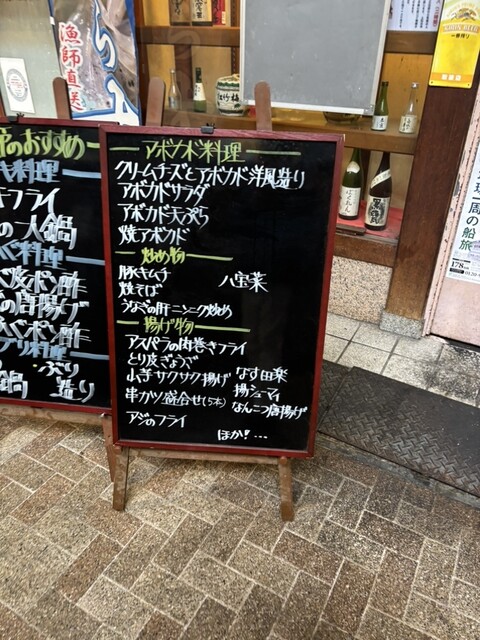 アボカド料理
クリームチーズとアボカド洋風造り
アボカドサラダ
アボカド天ぷら
焼アボカド
炒め物
豚キムチ
八宝菜
焼そば
うなぎの肝ニンニク炒め
揚げ物
アスパラの肉巻きフライ
とり皮ぎょうざ
山芋サクサク揚げ
なす田楽
揚シューマイ
串カツ盛合せ(5本)
なんこつ唐揚げ
アジのフライ
ほか!…
のおすすめ
料理
キフライ
の一人鍋
ポン酢
の唐揚げ
ポン酢
ブリ料理
ぶり
鍋
造り
漁師直送
松竹梅
一番搾り
一周の船旅
178